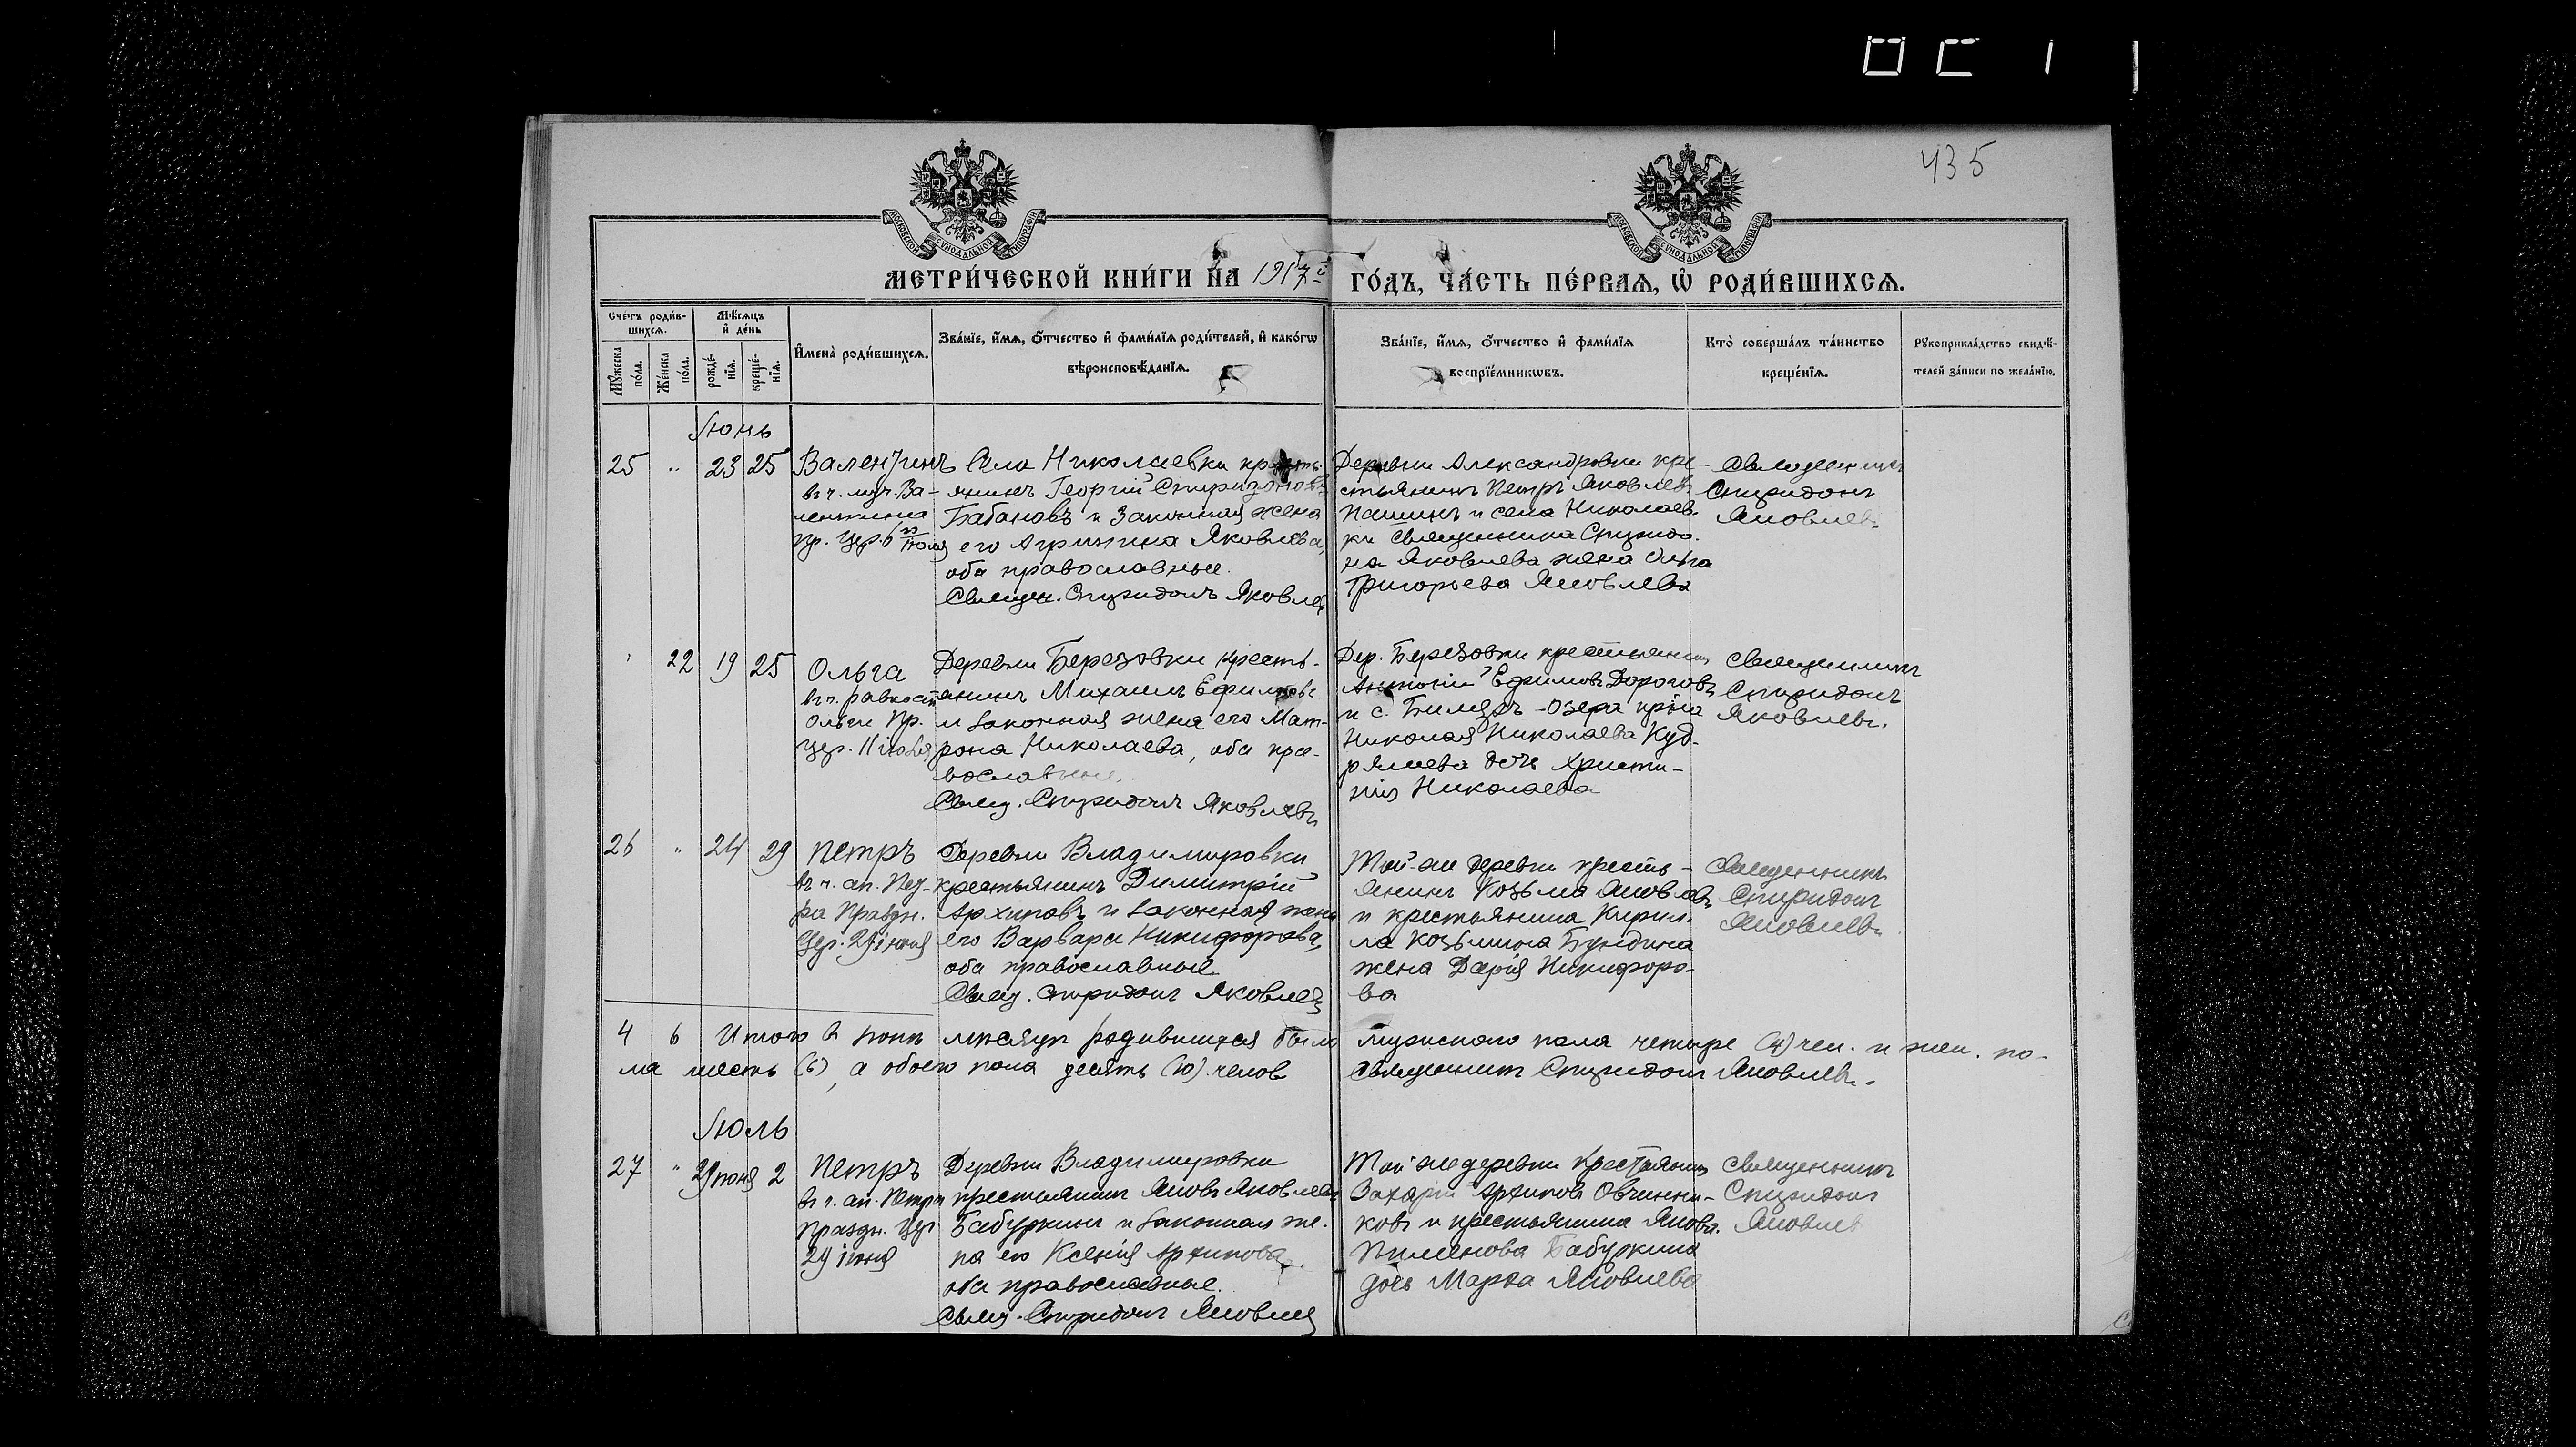 435
МОСКОВСКОЙ СѴНОДАЛЬНОЙ ТИПОГРАФІИ
МОСКОВСКОЙ СѴНОДАЛЬНОЙ ТИПОГРАФІИ
МЕТРИ́ЧЕСКОЙ КНИ́ГИ НА 1917й ГО́ДЪ, ЧА́СТЬ ПЕ́РВАѦ, Ѡ҆ РОДИ́ВШИХСѦ.
Сче́тъ роди́в-
шихсѧ.
Мѣ́сѧцъ
и҆ де́нь
Мꙋ́жеска
по́ла.
Же́нска
по́ла.
рожде́-
нїѧ.
креще́-
нїѧ.
И҆мена̀ роди́вшихсѧ.
Зва́нїе, и҆́мѧ, ѻ҆́тчество и҆ фами́лїѧ роди́телей, и҆ како́гѡ
вѣроисповѣ́данїѧ.
Зва́нїе, и҆́мѧ, ѻ҆́тчество и҆ фами́лїѧ
воспрїе́мникѡвъ.
Кто̀ соверша́лъ та́инство
креще́нїѧ.
Рꙋкоприкла́дство свидѣ́-
телей за́писи по жела́нїю.
Іюнь
25 " 23 25
Валентинъ
въ ч. муч. Ва-
лентина
пр. Цер. 6 іюля
Села Николаевки кресть-
янинъ Георгій Спиридоновъ
Бабановъ и законная жена
его Агрипина Яковлева,
оба православные.
Священ. Спиридонъ Яковлевъ
Деревни Александровки кре-
стьянинъ Петръ Яковлевъ
Пашинъ и села Николаев-
ки священника Спиридо-
на Яковлева жена Ольга
Григорьева Яковлева
Священникъ
Спиридонъ
Яковлевъ.
" 22 19 25
Ольга
въ ч. равноап.
Ольги Пр.
Цер. 11 іюля
Деревни Березовки кресть-
янинъ Михаилъ Ефимовъ
и законная жена его Мат-
рона Николаева, оба пра-
вославные.
Свящ. Спиридонъ Яковлевъ
Дер. Березовки крестьянинъ
Антоній Ефимовъ Дороговъ
и с. Билядъ-Озера кр-на
Николая Николаева Куд-
ряшева дочь Христи-
нія Николаева
Священникъ
Спиридонъ
Яковлевъ.
26 " 24 29
Петръ
въ ч. ап. Пет-
ра Праздн.
Цер. 29 іюня
Деревни Владимировки
крестьянинъ Димитрій
Архиповъ и законная жена
его Варвара Никифорова,
оба православные.
Свящ. Спиридонъ Яковлевъ
Той-же деревни кресть-
янинъ Козьма Яковлевъ
и крестьянина Кирил-
ла Козьмина Бундина
жена Дарія Никифоро-
ва
Священникъ
Спиридонъ
Яковлевъ
4 6 Итого въ іюнѣ мѣсяцѣ родившихся было мужского пола четыре (4) чел. и жен. по-
ла шесть (6), а обоего пола десять (10) челов. Священникъ Спиридонъ Яковлевъ.
Іюль
27 " 29 іюня 2
Петръ
въ ч. ап. Петра
Праздн. Цер
29 іюня
Деревни Владимировки
крестьянинъ Яковъ Яковлевъ
Бабуркинъ и законная же-
на его Ксенія Архипова,
оба православные.
Свящ. Спиридонъ Яковлевъ
Той же деревни крестьянинъ
Захарій Архиповъ Овчинни-
ковъ и крестьянина Якова
Пименова Бабуркина
дочь Марѳа Яковлева
Священникъ
Спиридонъ
Яковлевъ